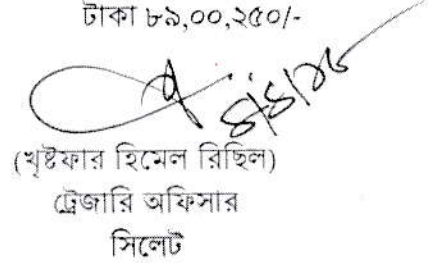 টাকা ৮৯,০০,২৫০/-
(খৃষ্টফার হিমেল রিছিল)
ট্রেজারি অফিসার
সিলেট